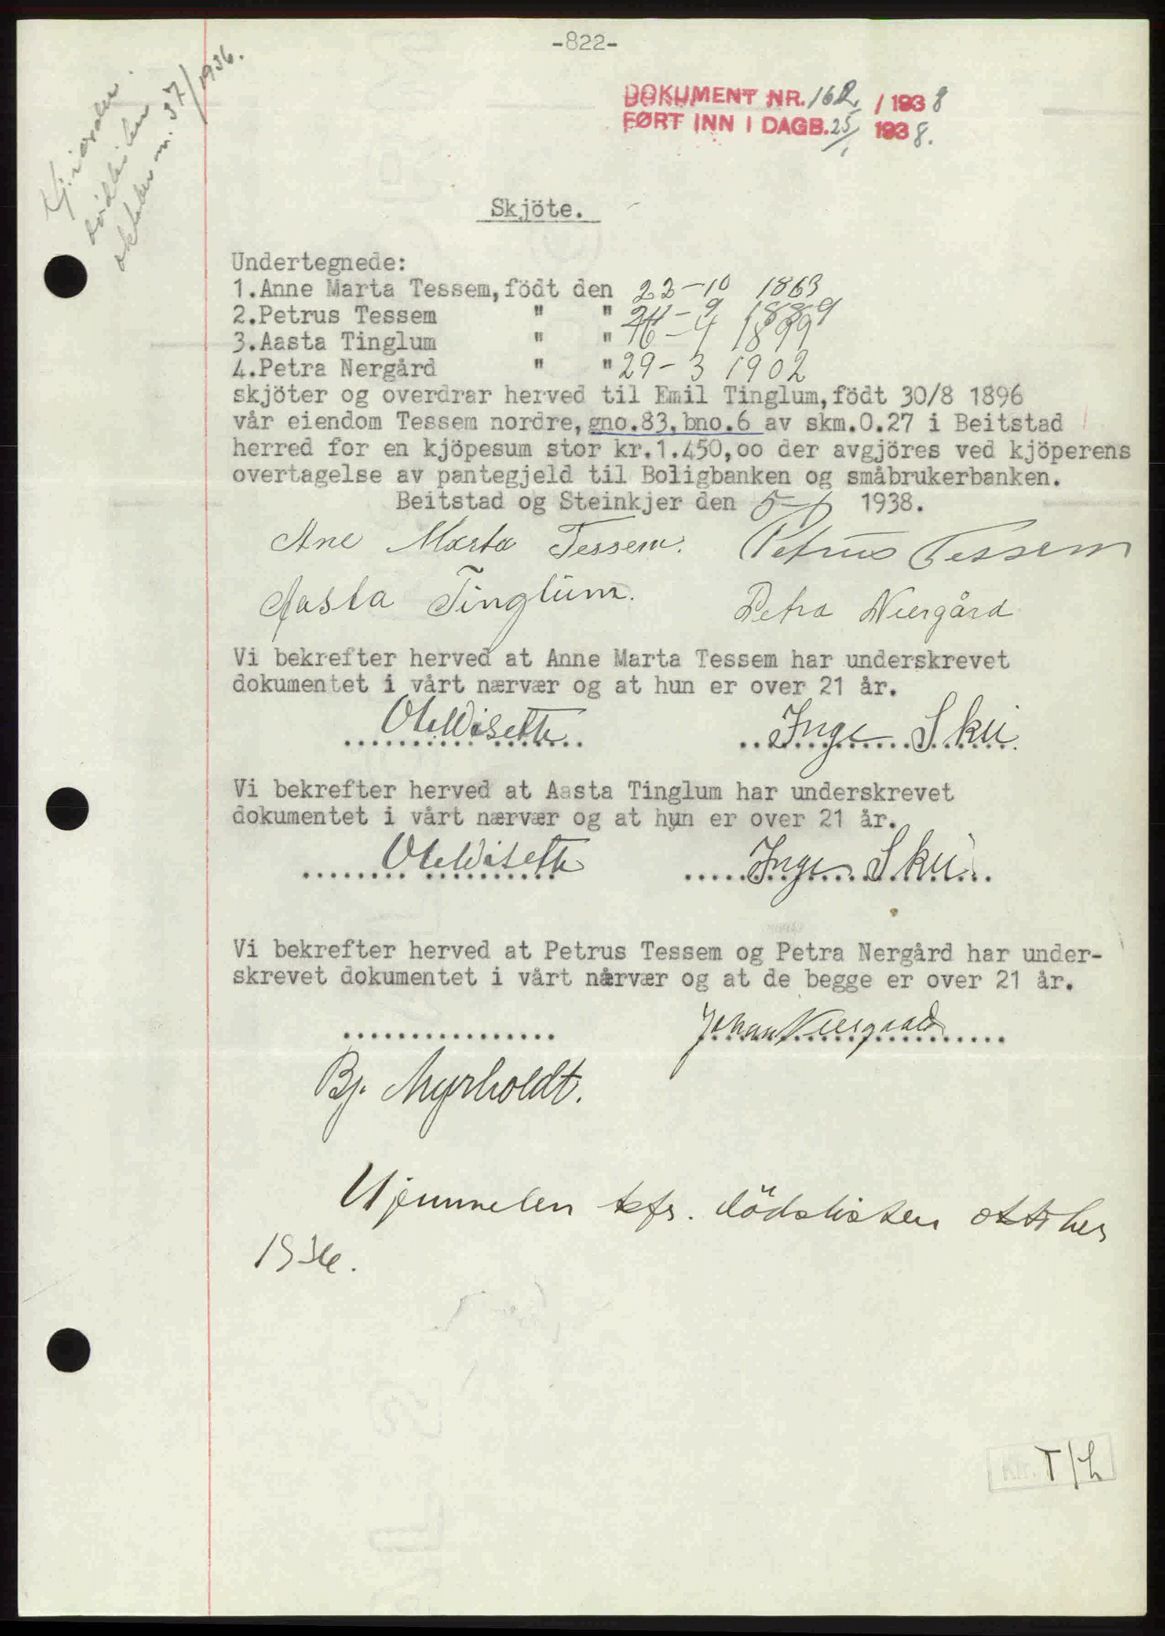 -822-
DOKUMENT NR. 162 / 1938
FØRT INN I DAGB. 25/1 1938.
37/1936.
Skjöte.
Undertegnede:
1.Anne Marta Tessem, födt den 23-10 1863
2.Petrus Tessem " " 24-9 1889
3.Aasta Tinglum " " 16-4 1899
4.Petra Nergård " " 29-3 1902
skjöter og overdrar herved til Emil Tinglum, födt 30/8 1896
vår eiendom Tessem nordre, gno.83, bno.6 av skm.0.27 i Beitstad
herred for en kjöpesum stor kr.1.450,oo der avgjöres ved kjöperens
overtagelse av pantegjeld til Boligbanken og småbrukerbanken.
Beitstad og Steinkjer den 5-1 1938.
Ane Marta Tessem. Petrus Tessem
Aasta Tinglum. Petra Neergård
Vi bekrefter herved at Anne Marta Tessem har underskrevet
dokumentet i vårt nærvær og at hun er over 21 år.
Inge Skei
Vi bekrefter herved at Aasta Tinglum har underskrevet
dokumentet i vårt nærvær og at hun er over 21 år.
Inge Skei
Vi bekrefter herved at Petrus Tessem og Petra Nergård har under-
skrevet dokumentet i vårt nærvær og at de begge er over 21 år.
Johan Neergaard
Bj. Myrholdt.
Hjemmelen kfr. dödslisten oktober
1936.
T/h